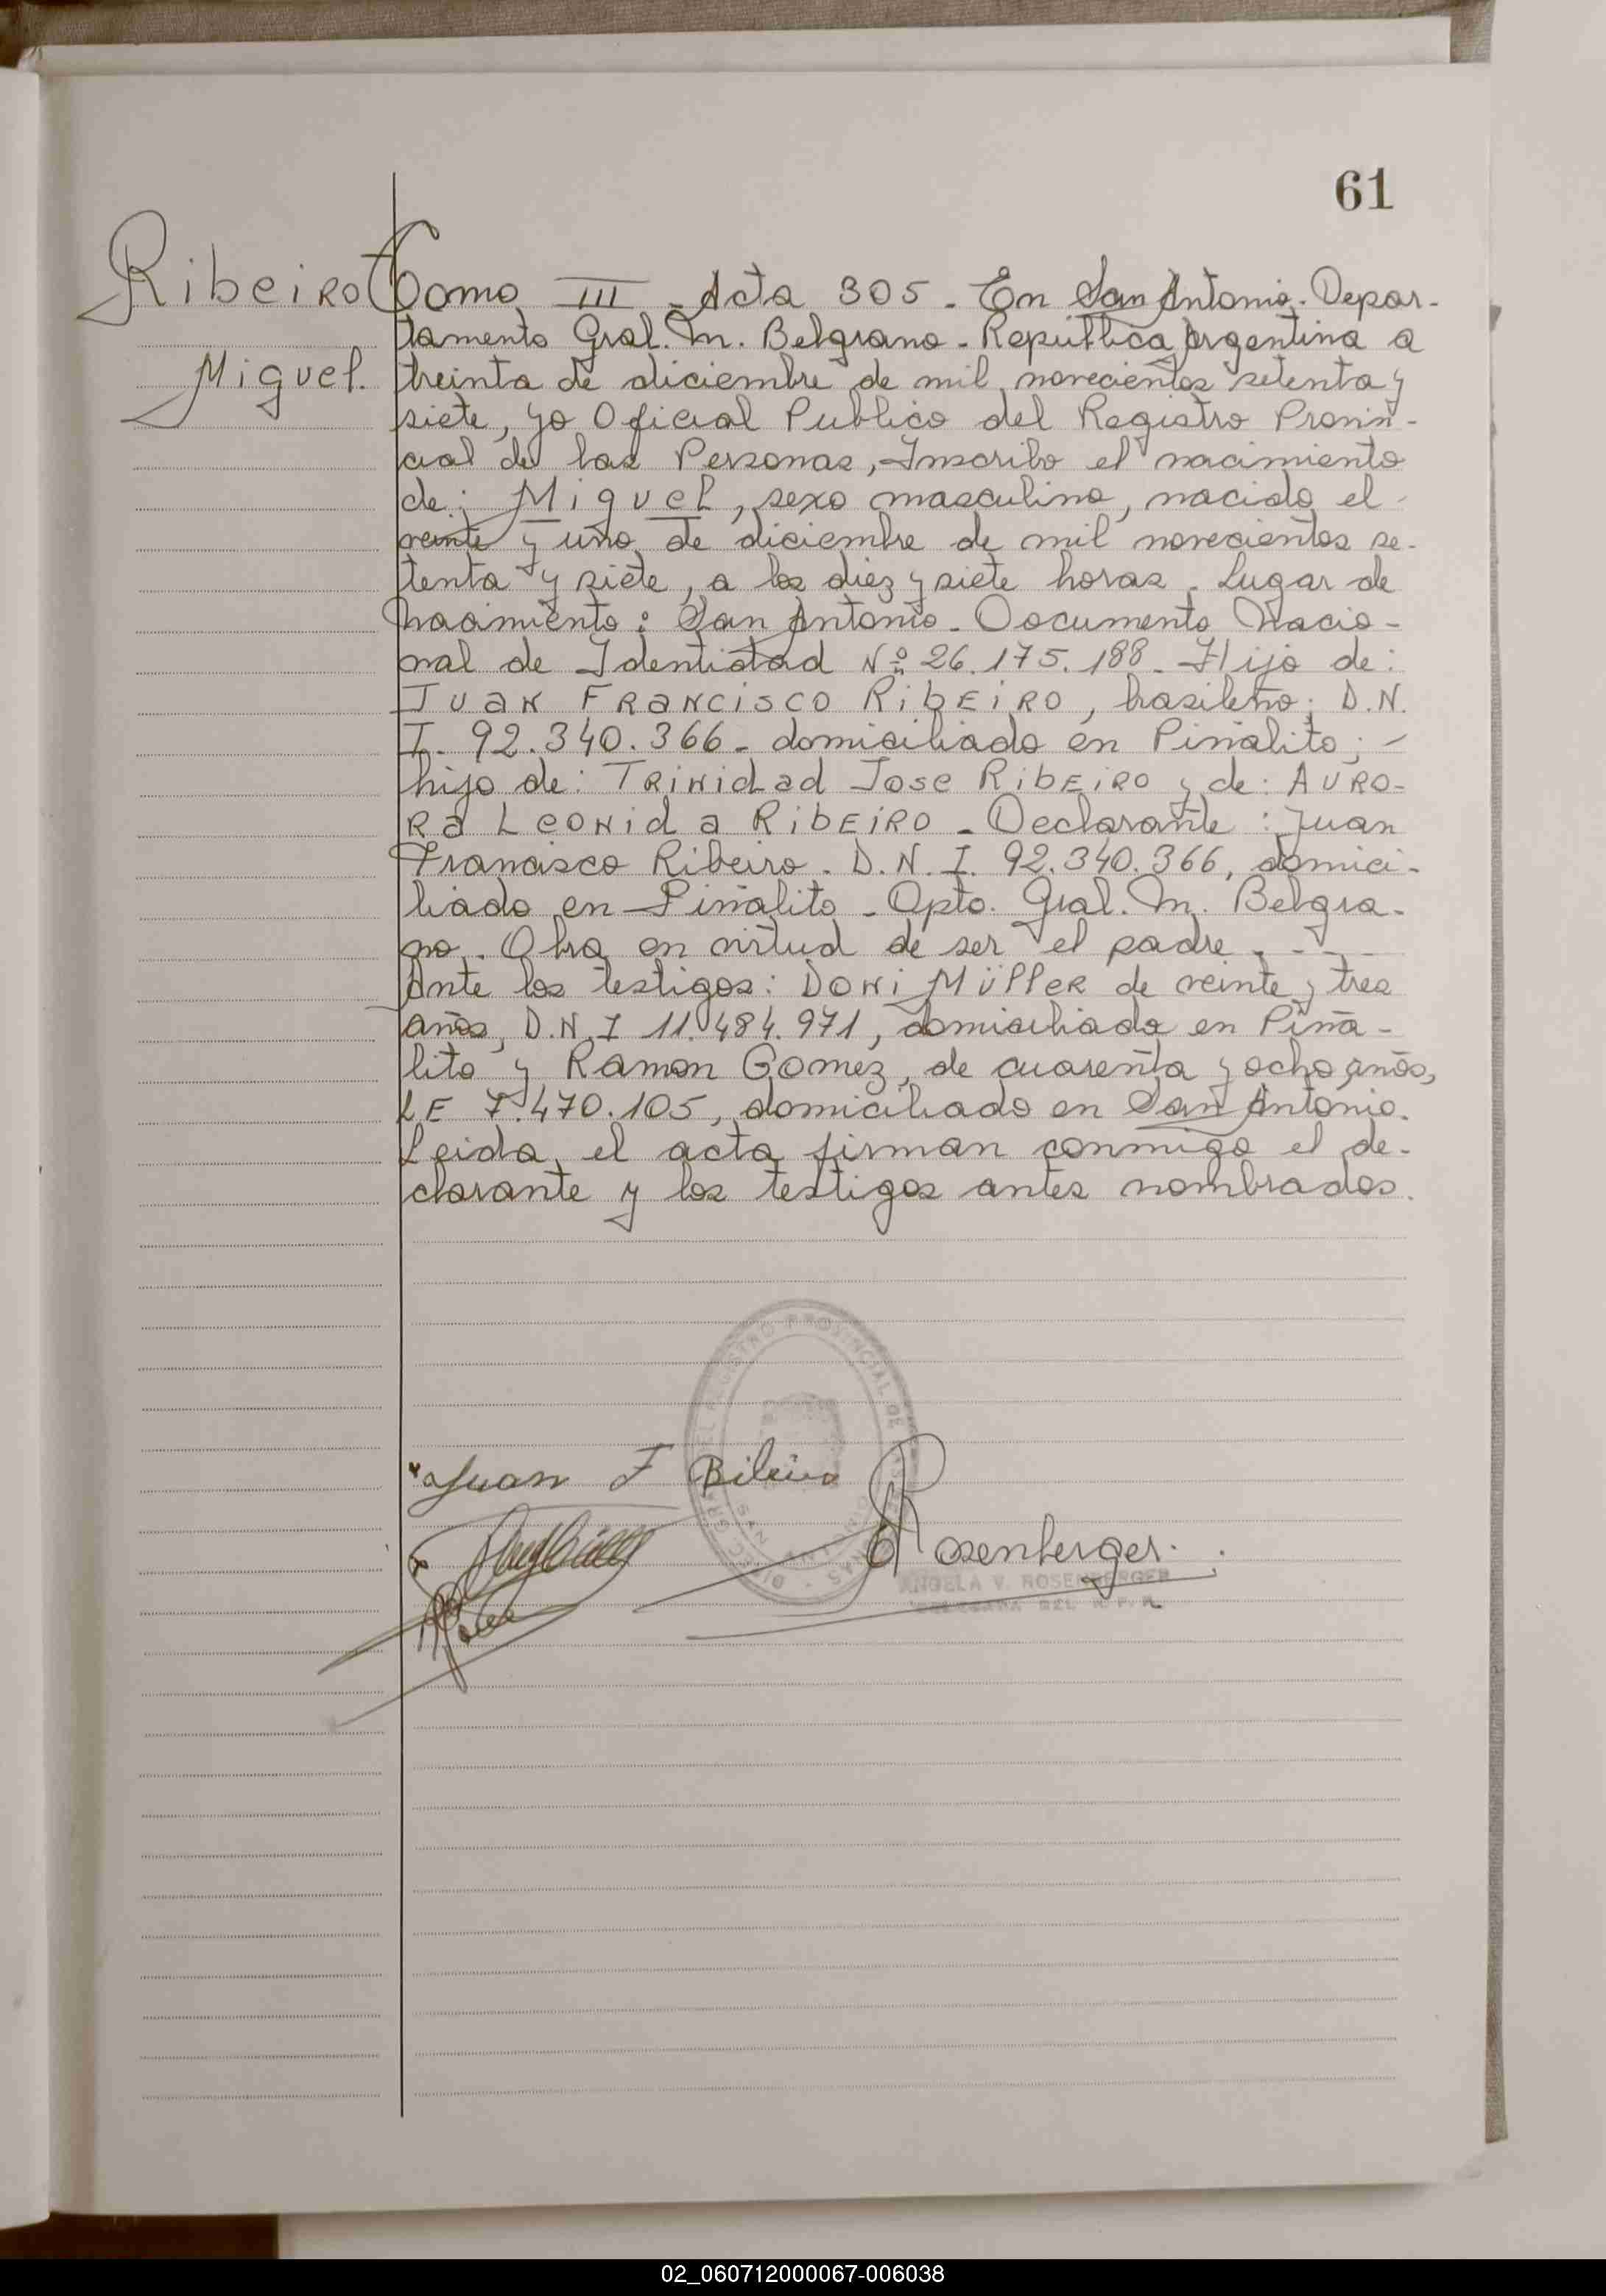 61
Ribeiro
Miguel.
Tomo III - Acta 305 - En San Antonio - Depar-
tamento Gral. M. Belgrano - República Argentina a
treinta de diciembre de mil novecientos setenta y
siete, yo Oficial Publico del Registro Provin-
cial de las Personas, Inscribo el nacimiento
de: Miguel, sexo masculino, nacido el -
veinte y uno de diciembre de mil novecientos se-
tenta y siete, a las diez y siete horas. Lugar de
nacimiento: San Antonio - Documento Nacio-
nal de Identidad Nº 26.175.188 - Hijo de:
JUAN FRANCISCO RIBEIRO, brasileño; D.N.
I. 92.340.366 - domiciliado en Piñalito; -
hijo de: TRINIDAD JOSE RIBEIRO y de: AURO-
RA LEONIDA RIBEIRO - Declarante: Juan
Francisco Ribeiro. D.N.I. 92.340.366, domici-
liado en Piñalito - Dpto. Gral. M. Belgra-
no. Obra en virtud de ser el padre - - -
Ante los testigos: DONI MÜLLER de veinte y tres
años, D.N.I 11.484.971, domiciliado en Piña-
lito y Ramon Gomez, de cuarenta y ocho años,
LE 7.470.105, domiciliado en San Antonio.
Leida el acta firman conmigo el de-
clarante y los testigos antes nombrados.
Juan F Ribeiro
Rosenberger.
ANGELA V. ROSENBERGER
DELEGADA DEL R.P.P.
02_060712000067-006038